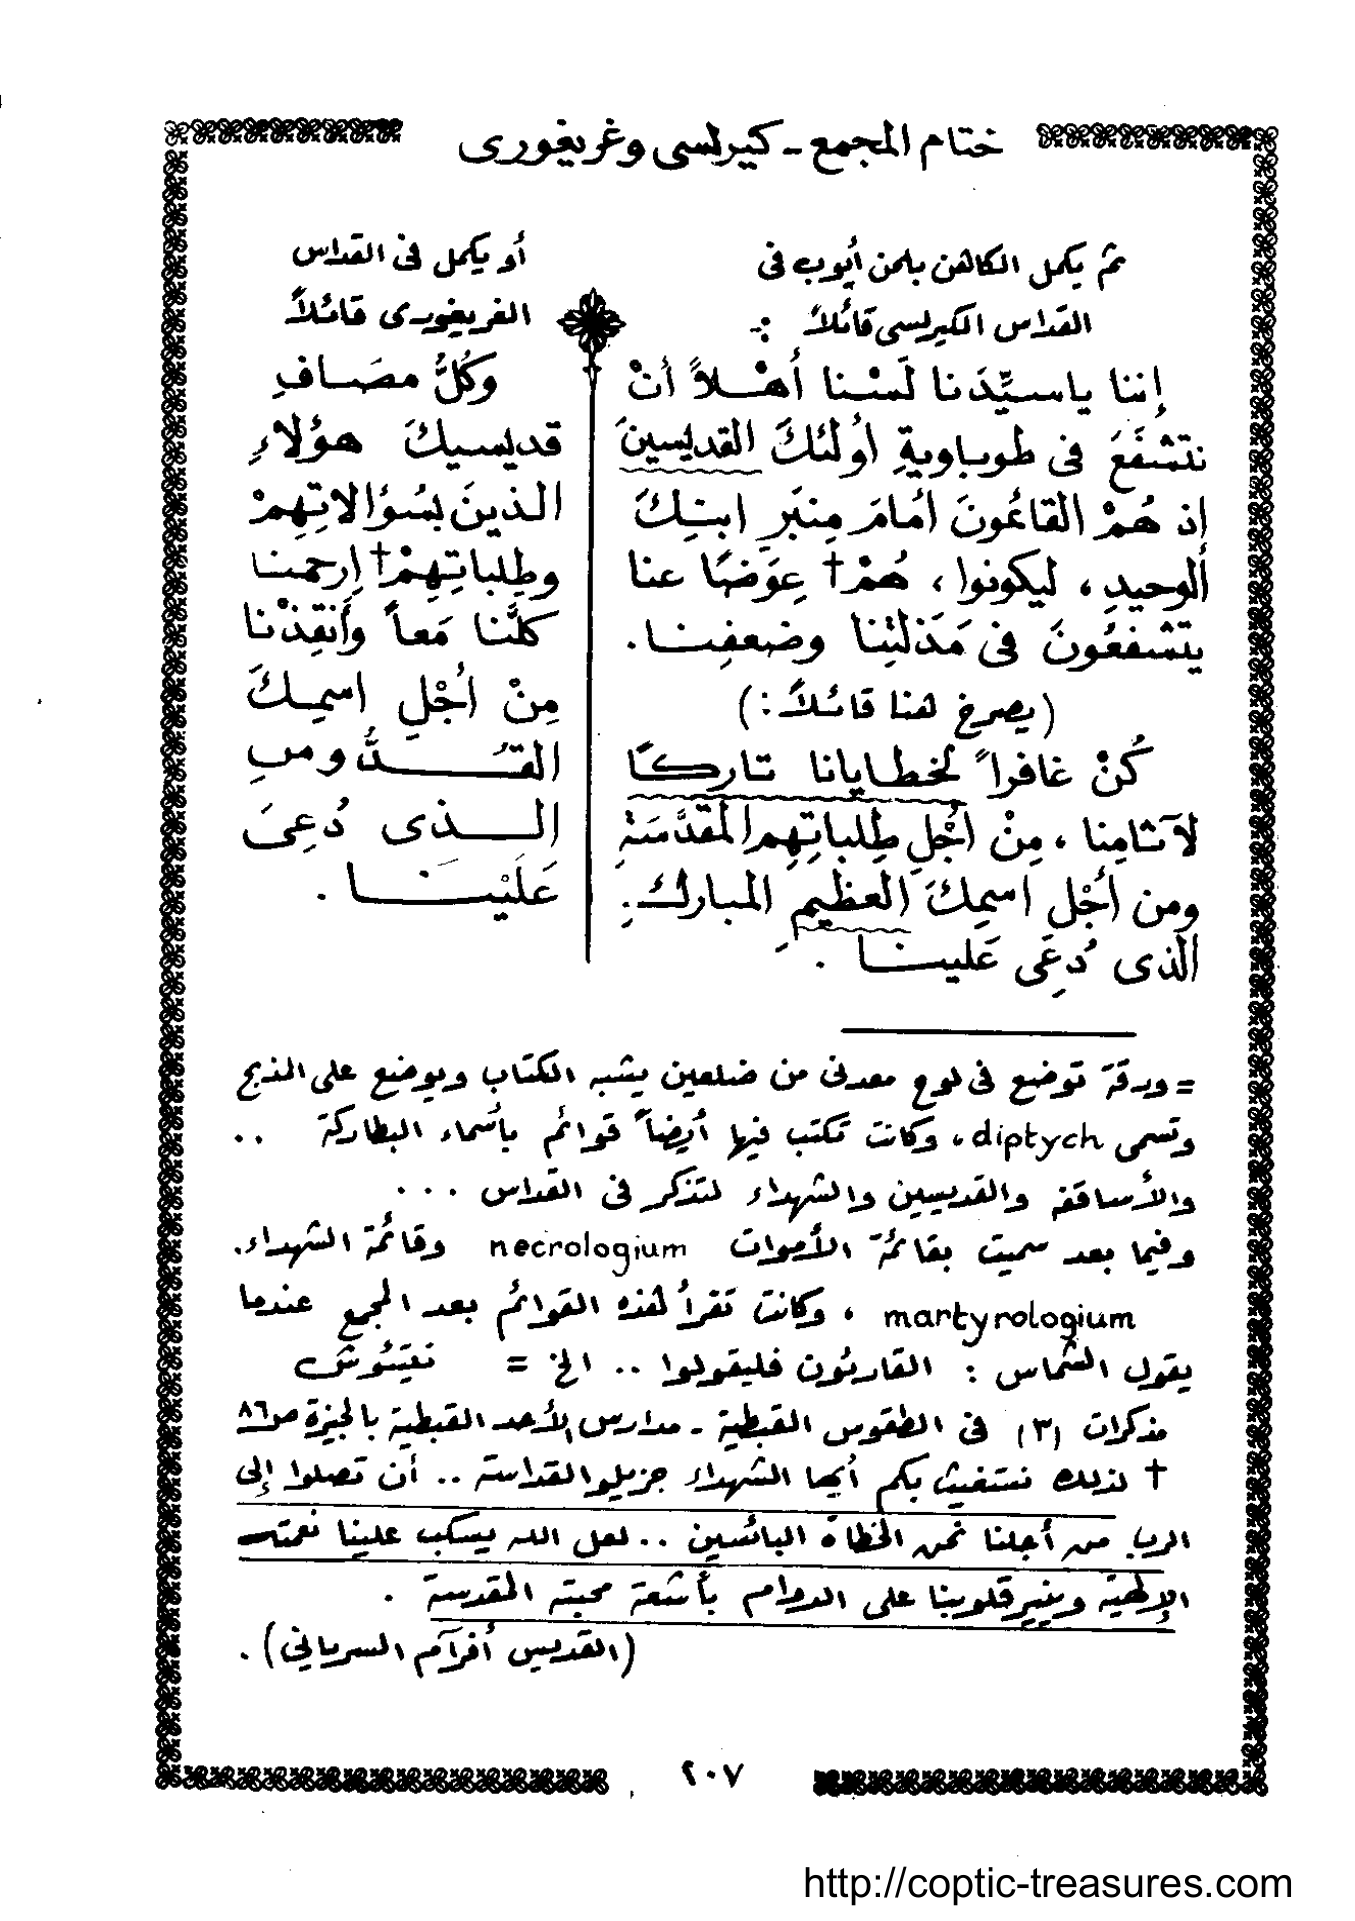 ختام المجمع - كيرلسى وغريغورى
ثم يكمل الكاهن بلحن أيوب فى
القداس الكيرلسى قائلاً :-
إننا ياسيِّدَنا لَسْنا أهْلاً أنْ
نتشفَعَ فى طوباويةِ أولئكَ القديسينَ
إذ هُمْ القائمونَ أمامَ مِنبَرِ ابنِكَ
الوحيدِ ، ليكونوا ، هُمْ† عِوَضًا عنا
يتشفعُونَ فى مَذلتِنا وضعفِنا.
(يصرخ هنا قائلاً :)
كُنْ غافراً لخطايانا تاركًا
لآثامِنا ، مِنْ أجْلِ طِلباتِهِم المقدَّسَةِ
ومن أجْلِ اسمِكَ العظيمِ المبارك.
الذى دُعِىَ عَلينا .
أو يكمل فى القداس
الغريغورى قائلاً
وكُلُّ مصَافِ
قديسيكَ هؤلاءِ
الذينَ بسُؤالاتِهِمْ
وطِلباتِهِمْ† اِرحمنا
كلَّنا مَعاً وأنقِذْنا
مِنْ أجْلِ اسمِكَ
القُدُّوسِ
الذى دُعِىَ
عَلَيْنا .
= ورقة توضع فى لوح معدنى من ضلعين يشبه الكتاب ويوضع على المذبح
وتسمى diptych ، وكانت تكتب فيها أيضاً قوائم بأسماء البطاركة ..
والأساقفه والقديسين والشهداء لتذكر فى القداس ...
وفيما بعد سميت بقائمة الأموات necrologium وقائمة الشهداء.
martyrologium ، وكانت تقرأ هذه القوائم بعد المجمع عندما
يقول الشماس : القارئون فليقولوا .. الخ =
مذكرات (٣) فى الطقوس القبطية - مدارس الأحد القبطية بالجيزة ص ٨٦
† لذلك نستغيث بكم أيها الشهداء جزيلو القداسة .. أن تصلوا إلى
الرب من أجلنا نحن الخطاة البائسين .. لعل الله يسكب علينا نعمته
الإلهية وينير قلوبنا على الدوام بأشعة محبته المقدسة .
(القديس أفرآم السرياني) .
٢٠٧
http://coptic-treasures.com